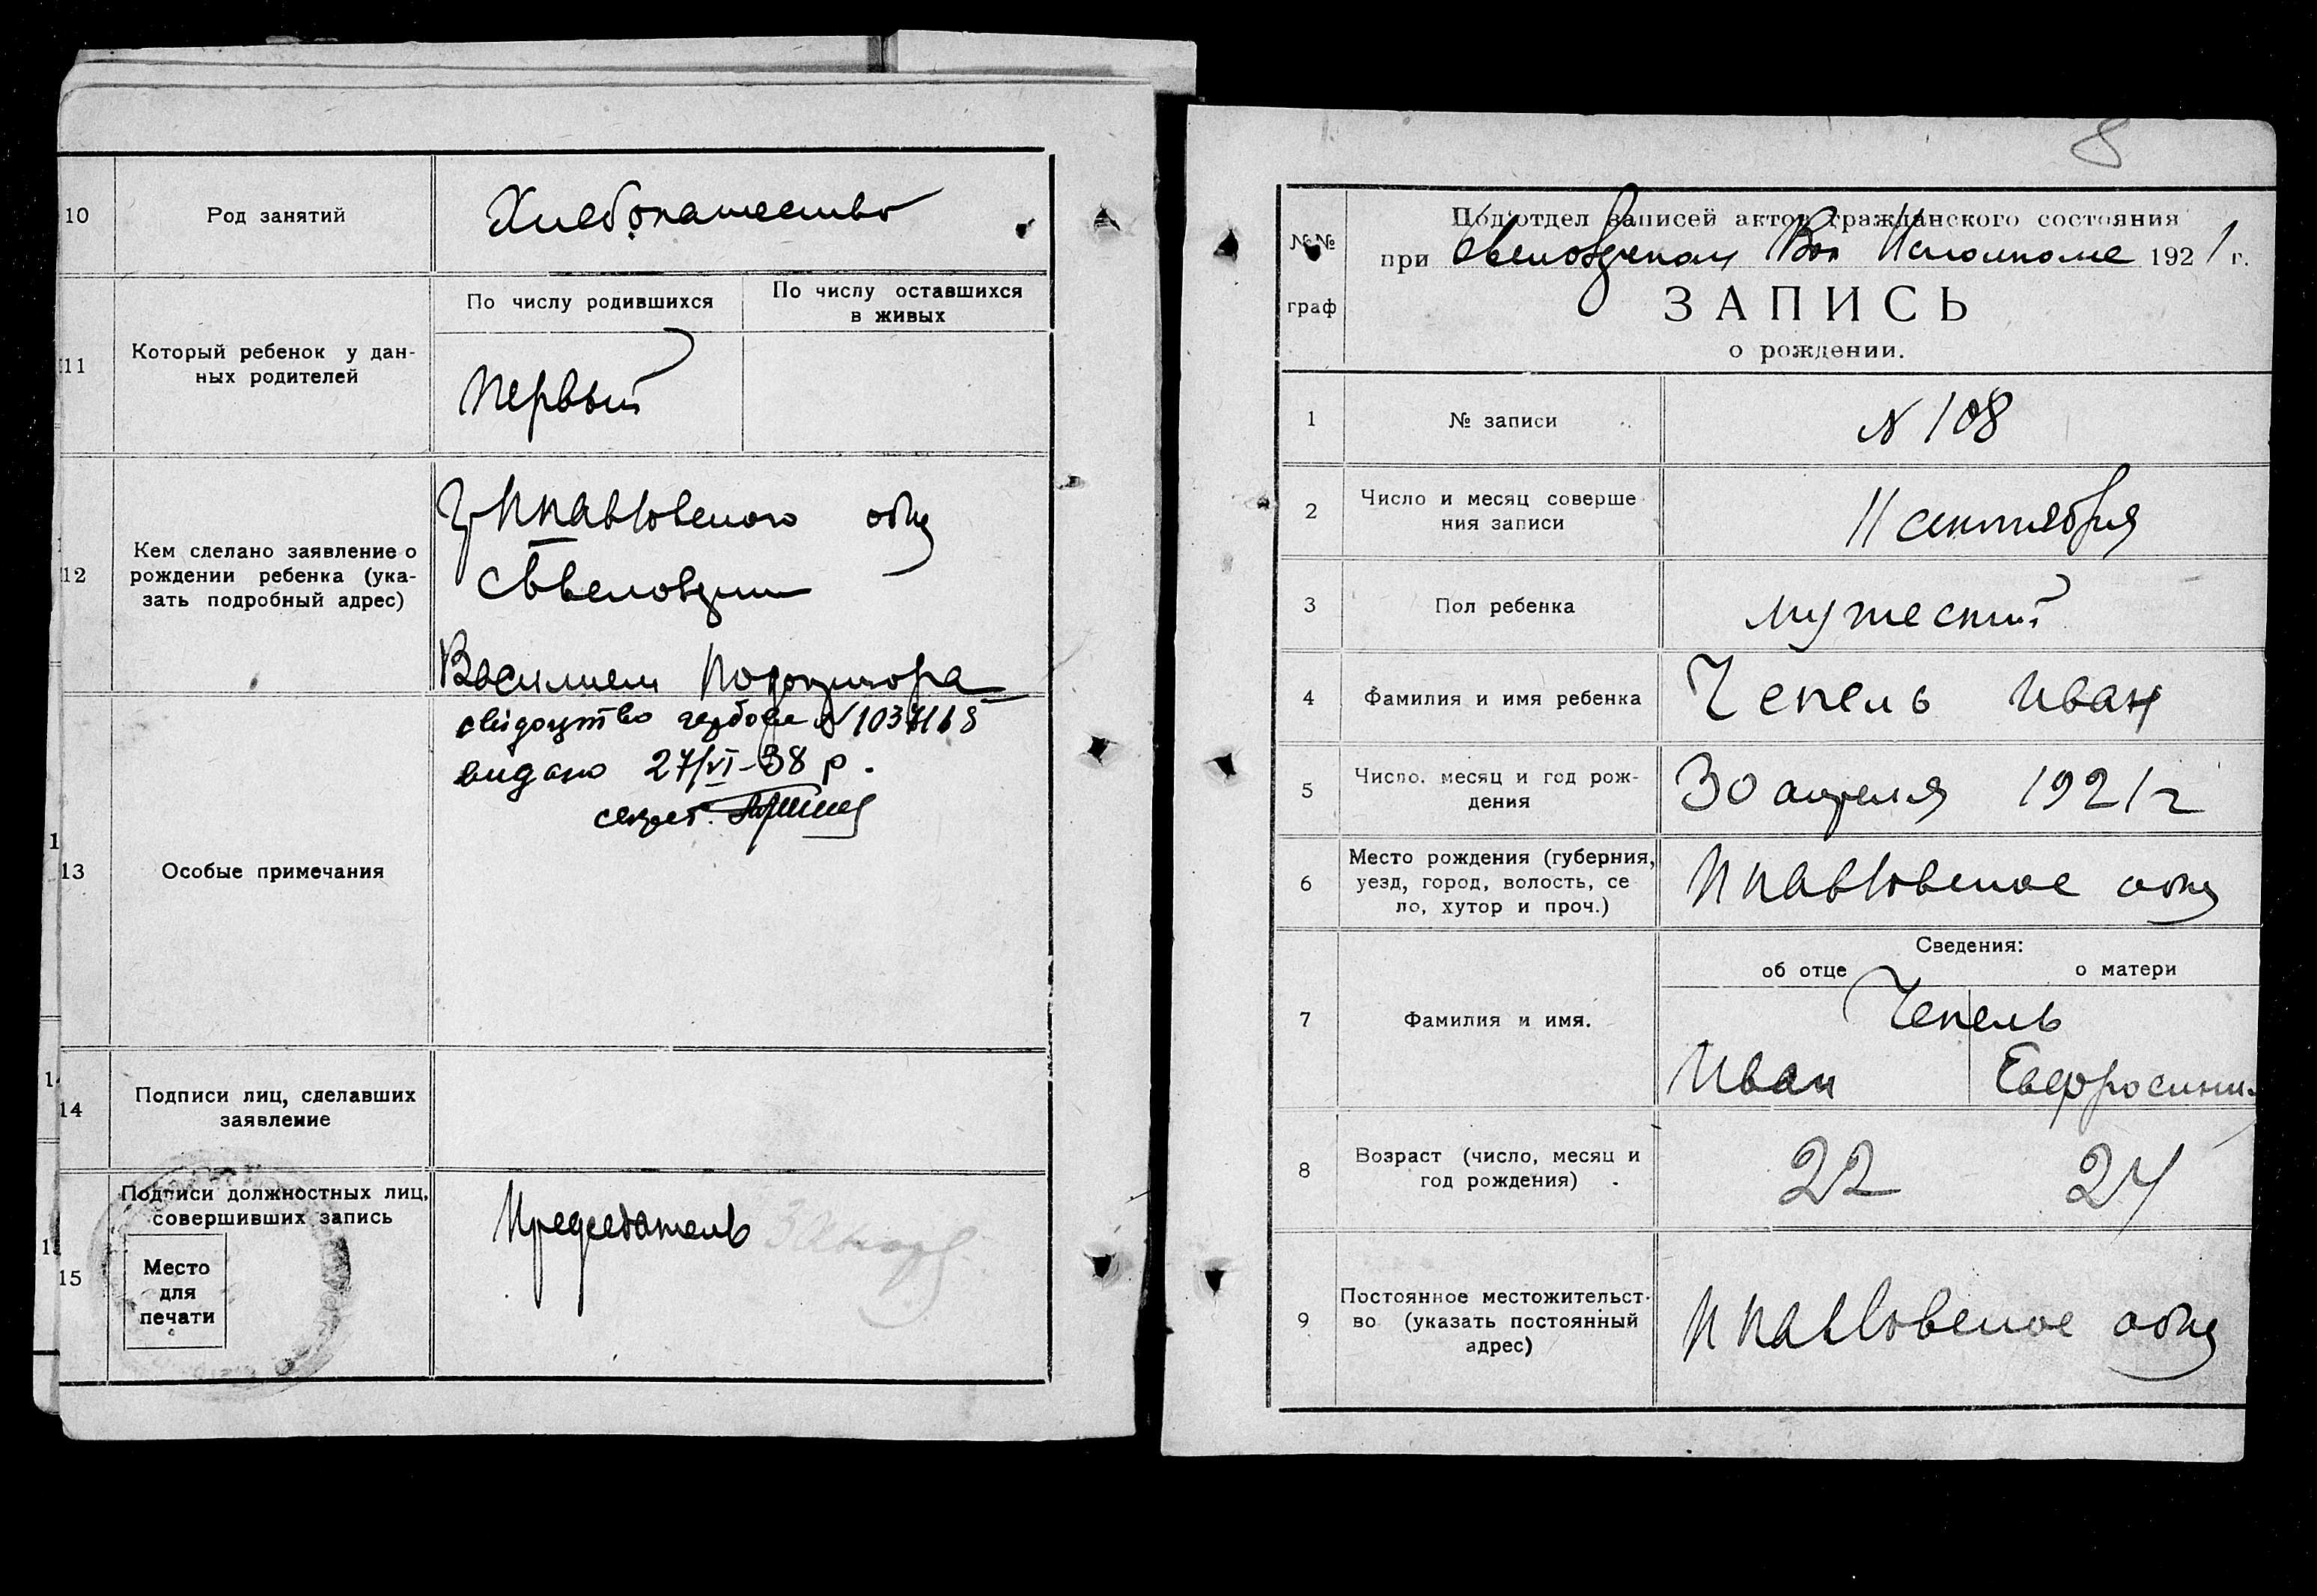 10
Род занятий
Хлебопашество
11
Который ребенок у дан-
ных родителей
По числу родившихся
По числу оставшихся
в живых
первый
12
Кем сделано заявление о
рождении ребенка (ука-
зать подробный адрес)
общ
Василием
13
Особые примечания
свідоцтво гербове N 1037168
видано 27/VI-38 р.
секрет.
14
Подписи лиц, сделавших
заявление
15
Подписи должностных лиц,
совершивших запись
Место
для
печати
Председатель
8
№№
граф
Подотдел записей актов гражданского состояния
при Вол Исполкоме 1921 г.
ЗАПИСЬ
о рождении.
1
№ записи
N 108
2
Число и месяц соверше
ния записи
11 сентября
3
Пол ребенка
мужеский
4
Фамилия и имя ребенка
Чепель Иван
5
Число, месяц и год рож-
дения
30 апреля 1921 г
6
Место рождения (губерния,
уезд, город, волость, се
ло, хутор и проч.)
общ
7
Фамилия и имя.
Сведения:
об отце
о матери
Чепель
Иван
Евфросиния
8
Возраст (число, месяц и
год рождения)
22
24
9
Постоянное местожительст-
во (указать постоянный
адрес)
общ